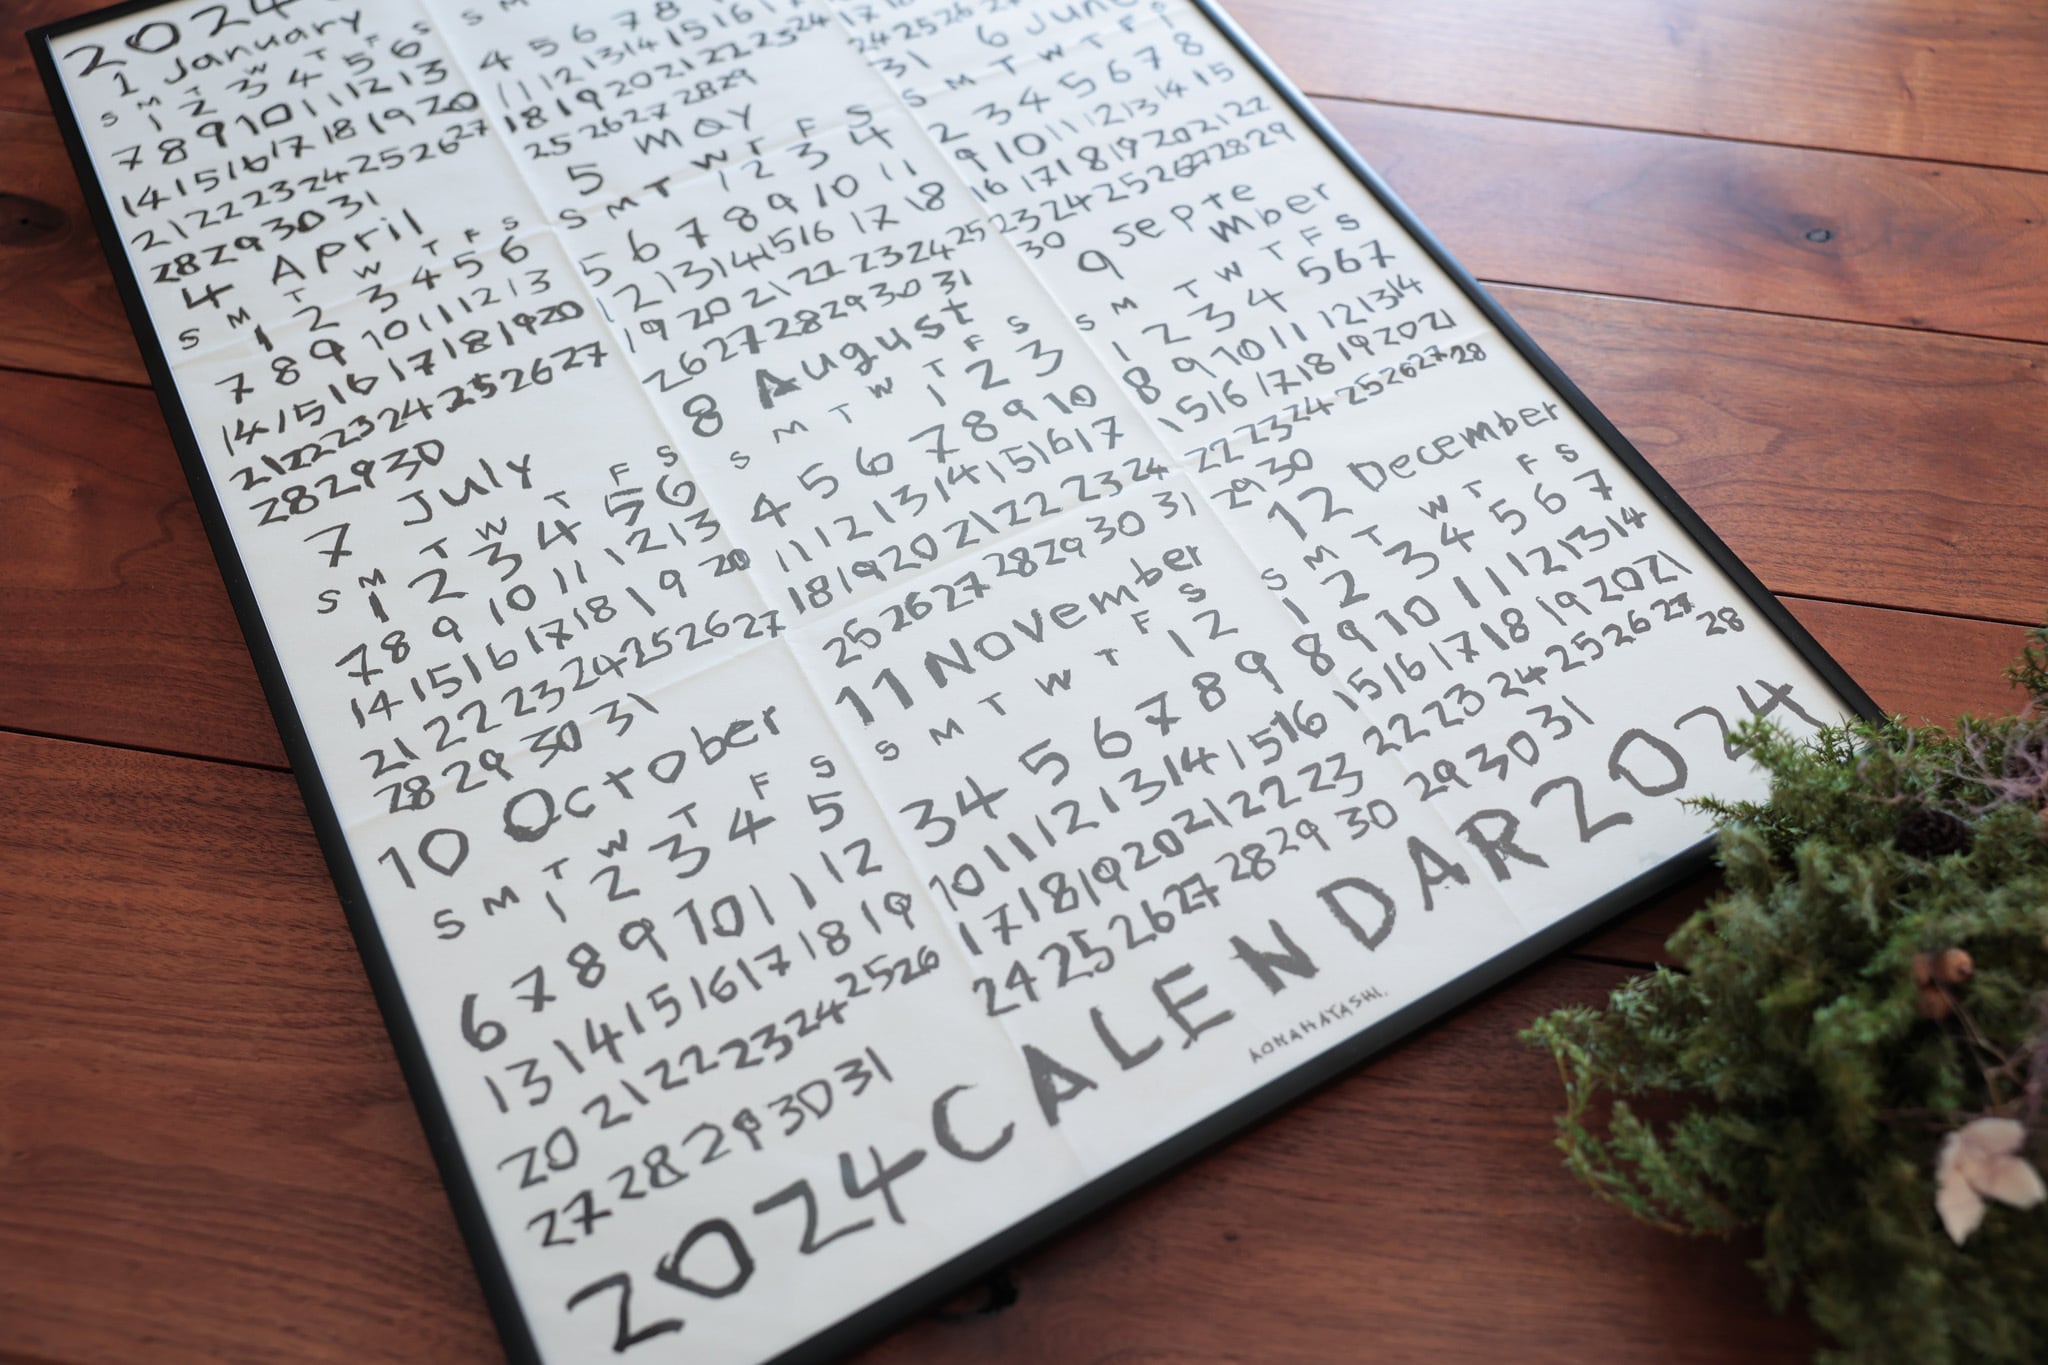 2024
1 January
S M T W T F S
1 2 3 4 5 6
7 8 9 10 11 12 13
14 15 16 17 18 19 20
21 22 23 24 25 26 27
28 29 30 31
S M
4 5 6 7 8
11 12 13 14 15 16
18 19 20 21 22 23 24
25 26 27 28 29
17 18
24 25 26 27
31
4 April
S M T W T F S
1 2 3 4 5 6
7 8 9 10 11 12 13
14 15 16 17 18 19 20
21 22 23 24 25 26 27
28 29 30
5 May
S M T W T F S
1 2 3 4
5 6 7 8 9 10 11
12 13 14 15 16 17 18
19 20 21 22 23 24 25
26 27 28 29 30 31
6 June
S M T W T F S
1
2 3 4 5 6 7 8
9 10 11 12 13 14 15
16 17 18 19 20 21 22
23 24 25 26 27 28 29
30
7 July
S M T W T F S
1 2 3 4 5 6
7 8 9 10 11 12 13
14 15 16 17 18 19 20
21 22 23 24 25 26 27
28 29 30 31
8 August
S M T W T F S
1 2 3
4 5 6 7 8 9 10
11 12 13 14 15 16 17
18 19 20 21 22 23 24
25 26 27 28 29 30 31
9 septe
mber
S M T W T F S
1 2 3 4 5 6 7
8 9 10 11 12 13 14
15 16 17 18 19 20 21
22 23 24 25 26 27 28
29 30
10 October
S M T W T F S
1 2 3 4 5
6 7 8 9 10 11 12
13 14 15 16 17 18 19
20 21 22 23 24 25 26
27 28 29 30 31
11 November
S M T W T F S
1 2
3 4 5 6 7 8 9
10 11 12 13 14 15 16
17 18 19 20 21 22 23
24 25 26 27 28 29 30
12 December
S M T W T F S
1 2 3 4 5 6 7
8 9 10 11 12 13 14
15 16 17 18 19 20 21
22 23 24 25 26 27 28
29 30 31
2024 CALENDAR 2024
AOHAHATASHI.